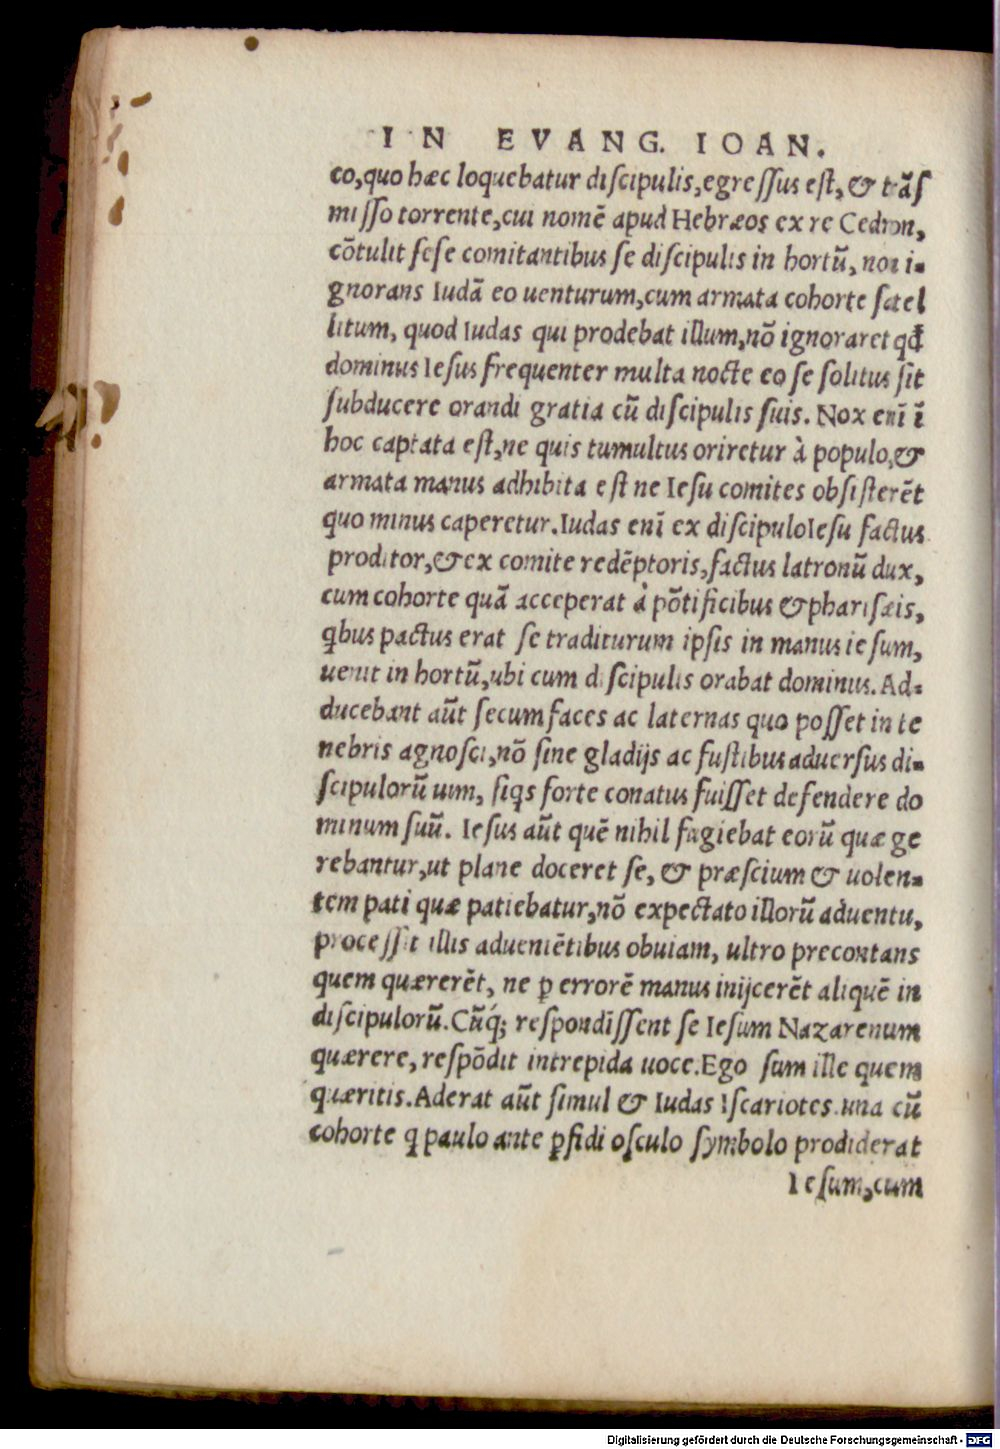 IN EVANG. IOAN.
co,quo hæc loquebatur diſcipulis,egreſſus eſt, & trãſ
miſſo torrente,cui nomẽ apud Hebræos ex re Cedron,
cõtulit ſeſe comitantibus ſe diſcipulis in hortũ, non i-
gnorans Iudã eo uenturum,cum armata cohorte ſatel
litum, quod Iudas qui prodebat illum,nõ ignoraret qđ
dominus Ieſus frequenter multa nocte eo ſe ſolitus ſit
ſubducere orandi gratia cũ diſcipulis ſuis. Nox enĩ ĩ
hoc captata eſt,ne quis tumultus oriretur à populo,&
armata manus adhibita eſt ne Ieſu comites obſiſterẽt
quo minus caperetur.Iudas enĩ ex diſcipuloIeſu factus
proditor,& ex comite redẽptoris,factus latronũ dux,
cum cohorte quã acceperat à põtificibus & phariſæis,
q̃bus pactus erat ſe traditurum ipſis in manus ieſum,
uenit in hortũ,ubi cum diſcipulis orabat dominus.Ad-
ducebant aũt ſecum faces ac laternas quo poſſet in te
nebris agnoſci,nõ ſine gladijs ac fuſtibus aduerſus di-
ſcipulorũ uim, ſiqs forte conatus fuiſſet defendere do
minum ſuũ. Ieſus aũt quẽ nihil fugiebat eorũ quæ ge
rebantur,ut plane doceret ſe, & præſcium & uolen-
tem pati quæ patiebatur,nõ expectato illorũ aduentu,
proceſſit illis adueniẽtibus obuiam, ultro precontans
quem quærerẽt, ne ꝑ errorẽ manus inijcerẽt aliquẽ in
diſcipulorũ.Cũq́; reſpondiſſent ſe Ieſum Nazarenum
quærere,reſpõdit intrepida uoce.Ego ſum ille quem
quæritis.Aderat aũt ſimul & Iudas Iſcariotes una cũ
cohorte q̃ paulo ante ꝑfidi oſculo ſymbolo prodiderat
Ieſum,cum
Digitalisierung gefördert durch die Deutsche Forschungsgemeinschaft - DFG